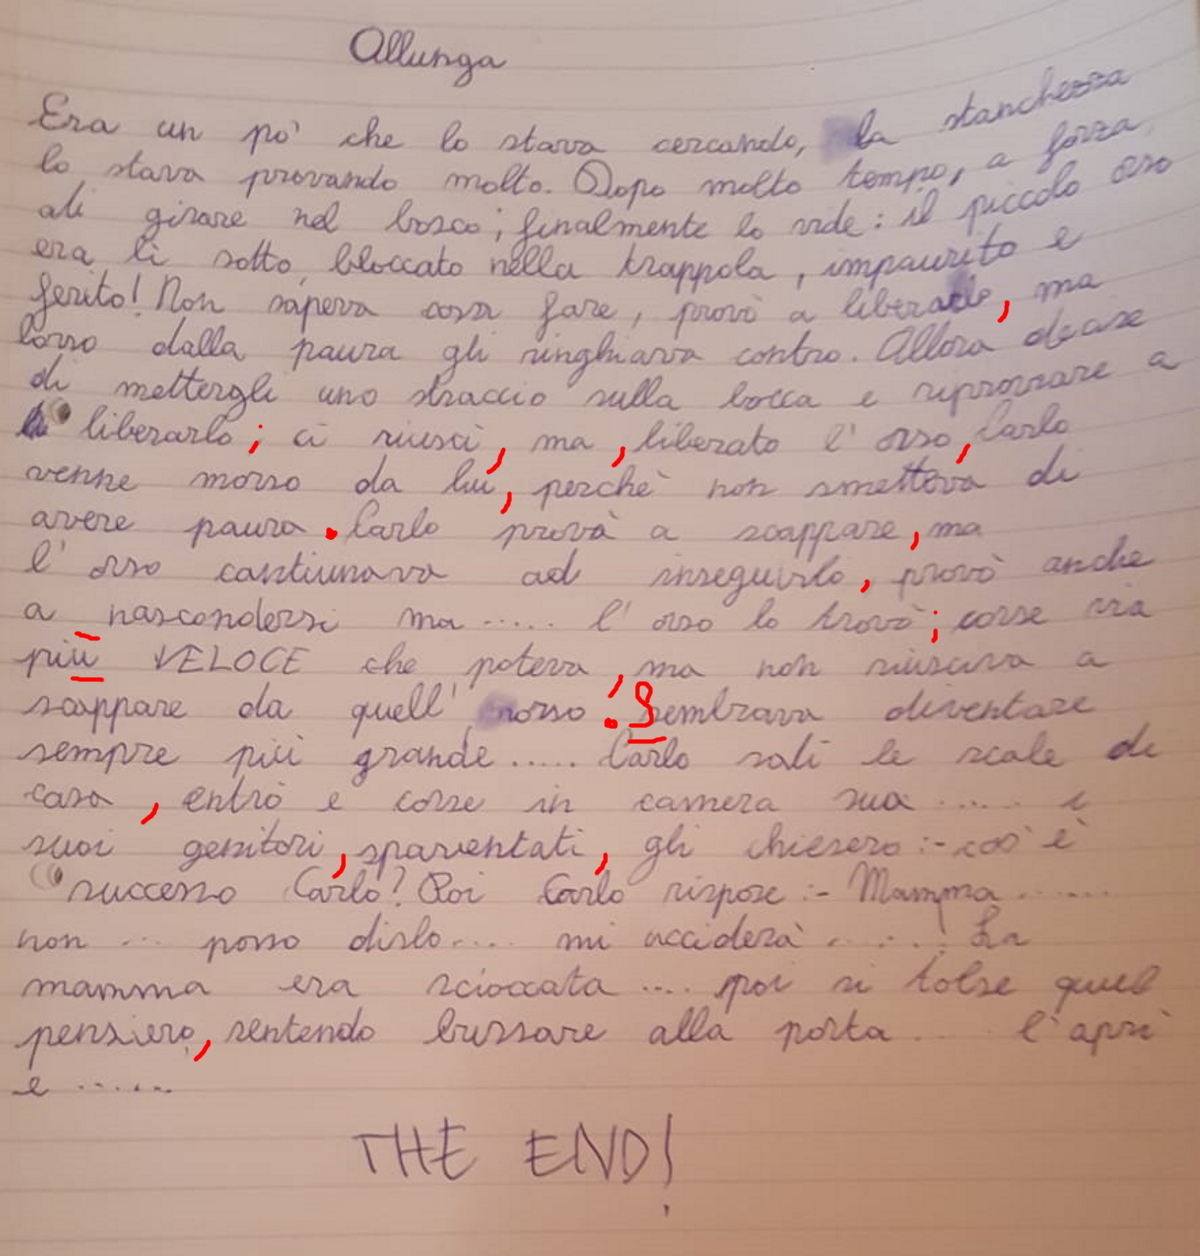 Allunga
Era un po' che lo stava cercando, la stanchezza
lo stava provando molto. Dopo molto tempo, a forza
di girare nel bosco; finalmente lo vide: il piccolo orso
era lì sotto, bloccato nella trappola, impaurito e
ferito! Non sapeva cosa fare, provò a liberarlo, ma
l'orso dalla paura gli ringhiava contro. Allora decise
di mettergli uno straccio sulla bocca e riprovare a
liberarlo; ci riuscì, ma, liberato l'orso, Carlo
venne morso da lui, perchè non smetteva di
avere paura. Carlo provò a scappare, ma
l'orso contiunava ad inseguirlo, provò anche
a nascondersi ma ..... l'orso lo trovò; corse via
più VELOCE che poteva, ma non riusciva a
scappare da quell' orso. Sembrava diventare
sempre più grande ..... Carlo salì le scale di
casa, entrò e corse in camera sua ..... i
suoi genitori, spaventati, gli chiesero :- cos'è
successo Carlo? Poi Carlo rispose :- Mamma ......
non ... posso dirlo .... mi ucciderà .....! La
mamma era scioccata .... poi si tolse quel
pensiero, sentendo bussare alla porta ... l'aprì
e ......
THE END!